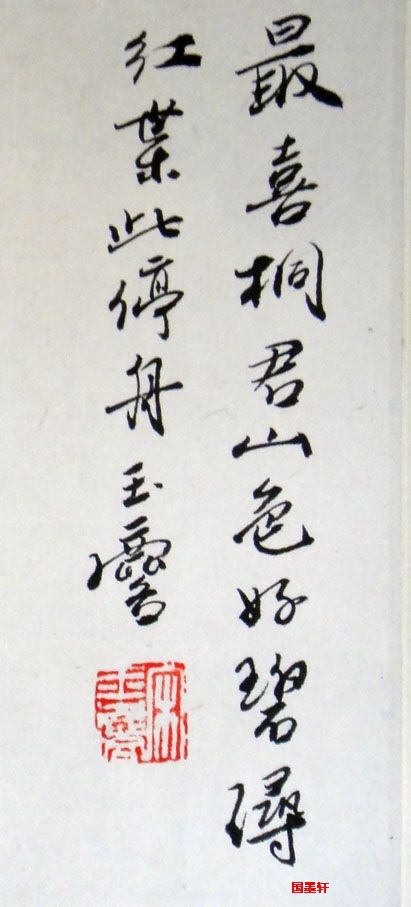 最喜桐君山色好碧潯
紅葉此停舟玉麐
国墨轩